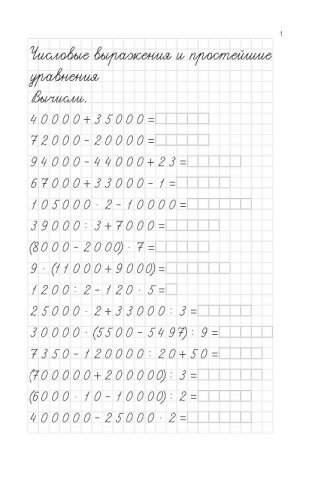 1
Числовые выражения и простейшие
уравнения
Вычисли.
40000+35000=
72000-20000=
94000-44000+23=
67000+33000-1=
105000·2-10000=
39000:3+7000=
(8000-2000)·7=
9·(11000+9000)=
1200:2-120·5=
25000·2+33000:3=
30000·(5500-5497):9=
7350-120000:20+50=
(700000+200000):3=
(6000·10-10000):2=
400000-25000·2=